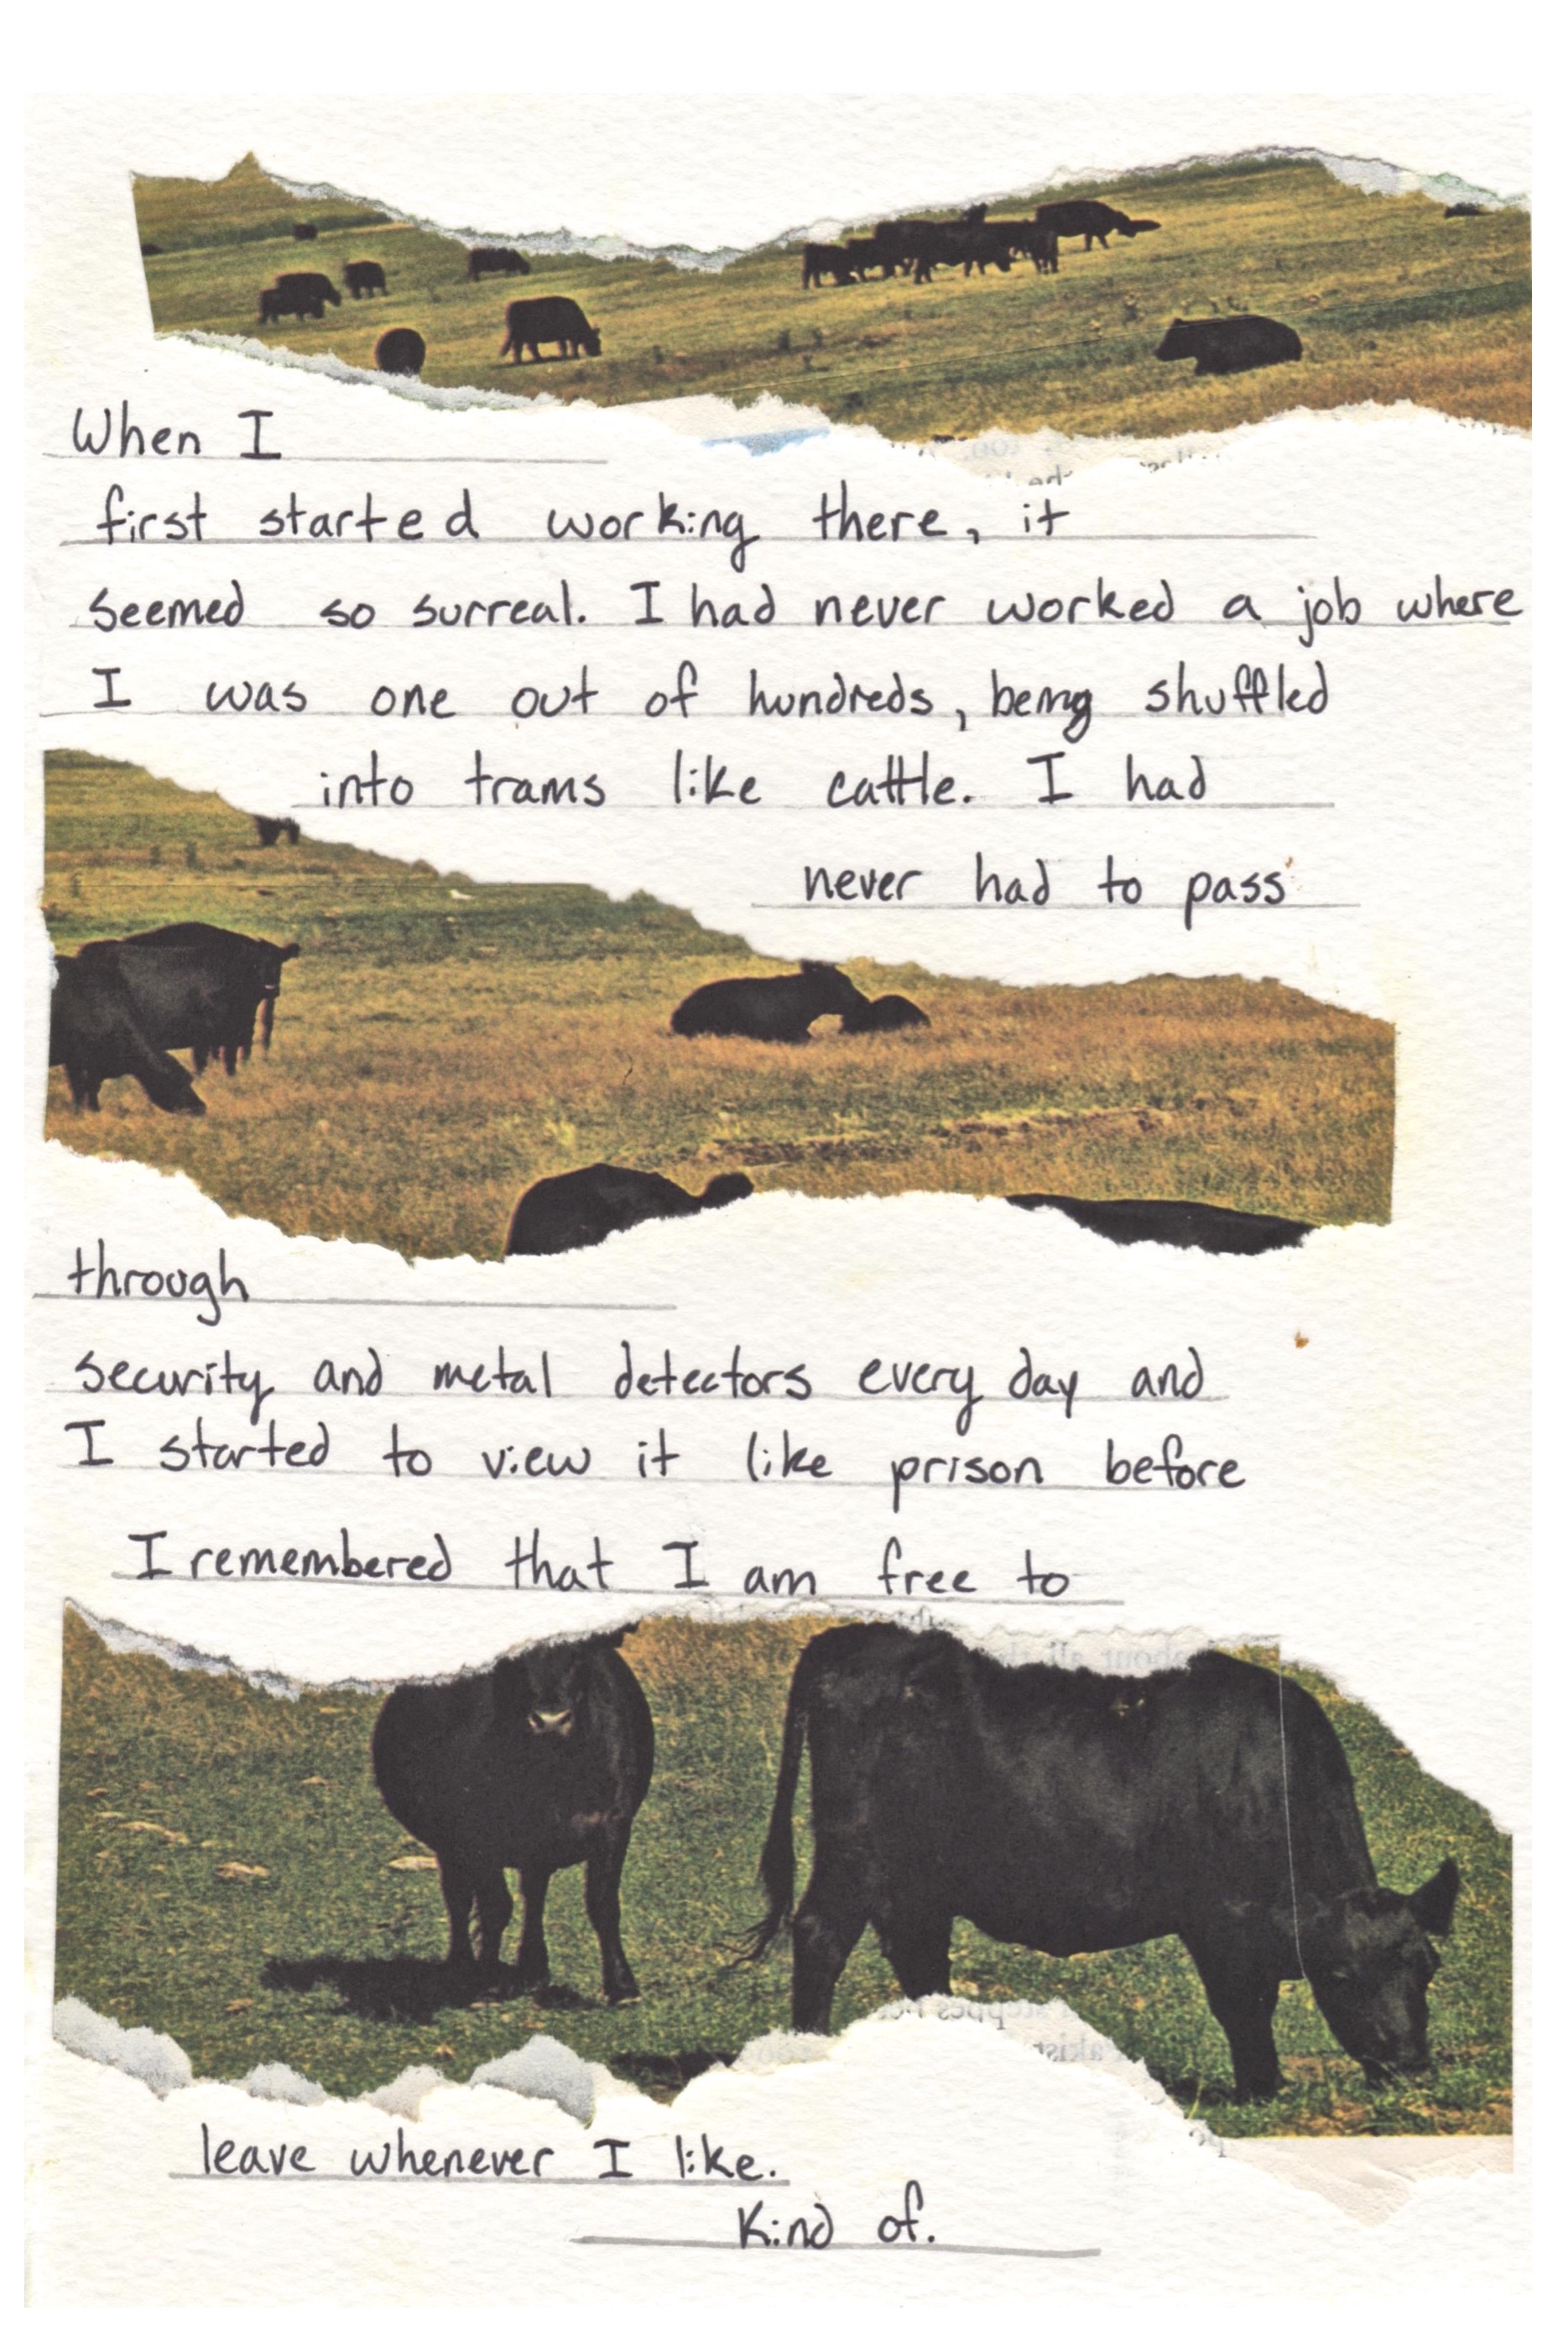 When I
first started working there, it
seemed so surreal. I had never worked a job where
I was one out of hundreds, being shuffled
into trams like cattle. I had
never had to pass
through
security and metal detectors every day and
I started to view it like prison before
I remembered that I am free to
leave whenever I like.
Kind of.